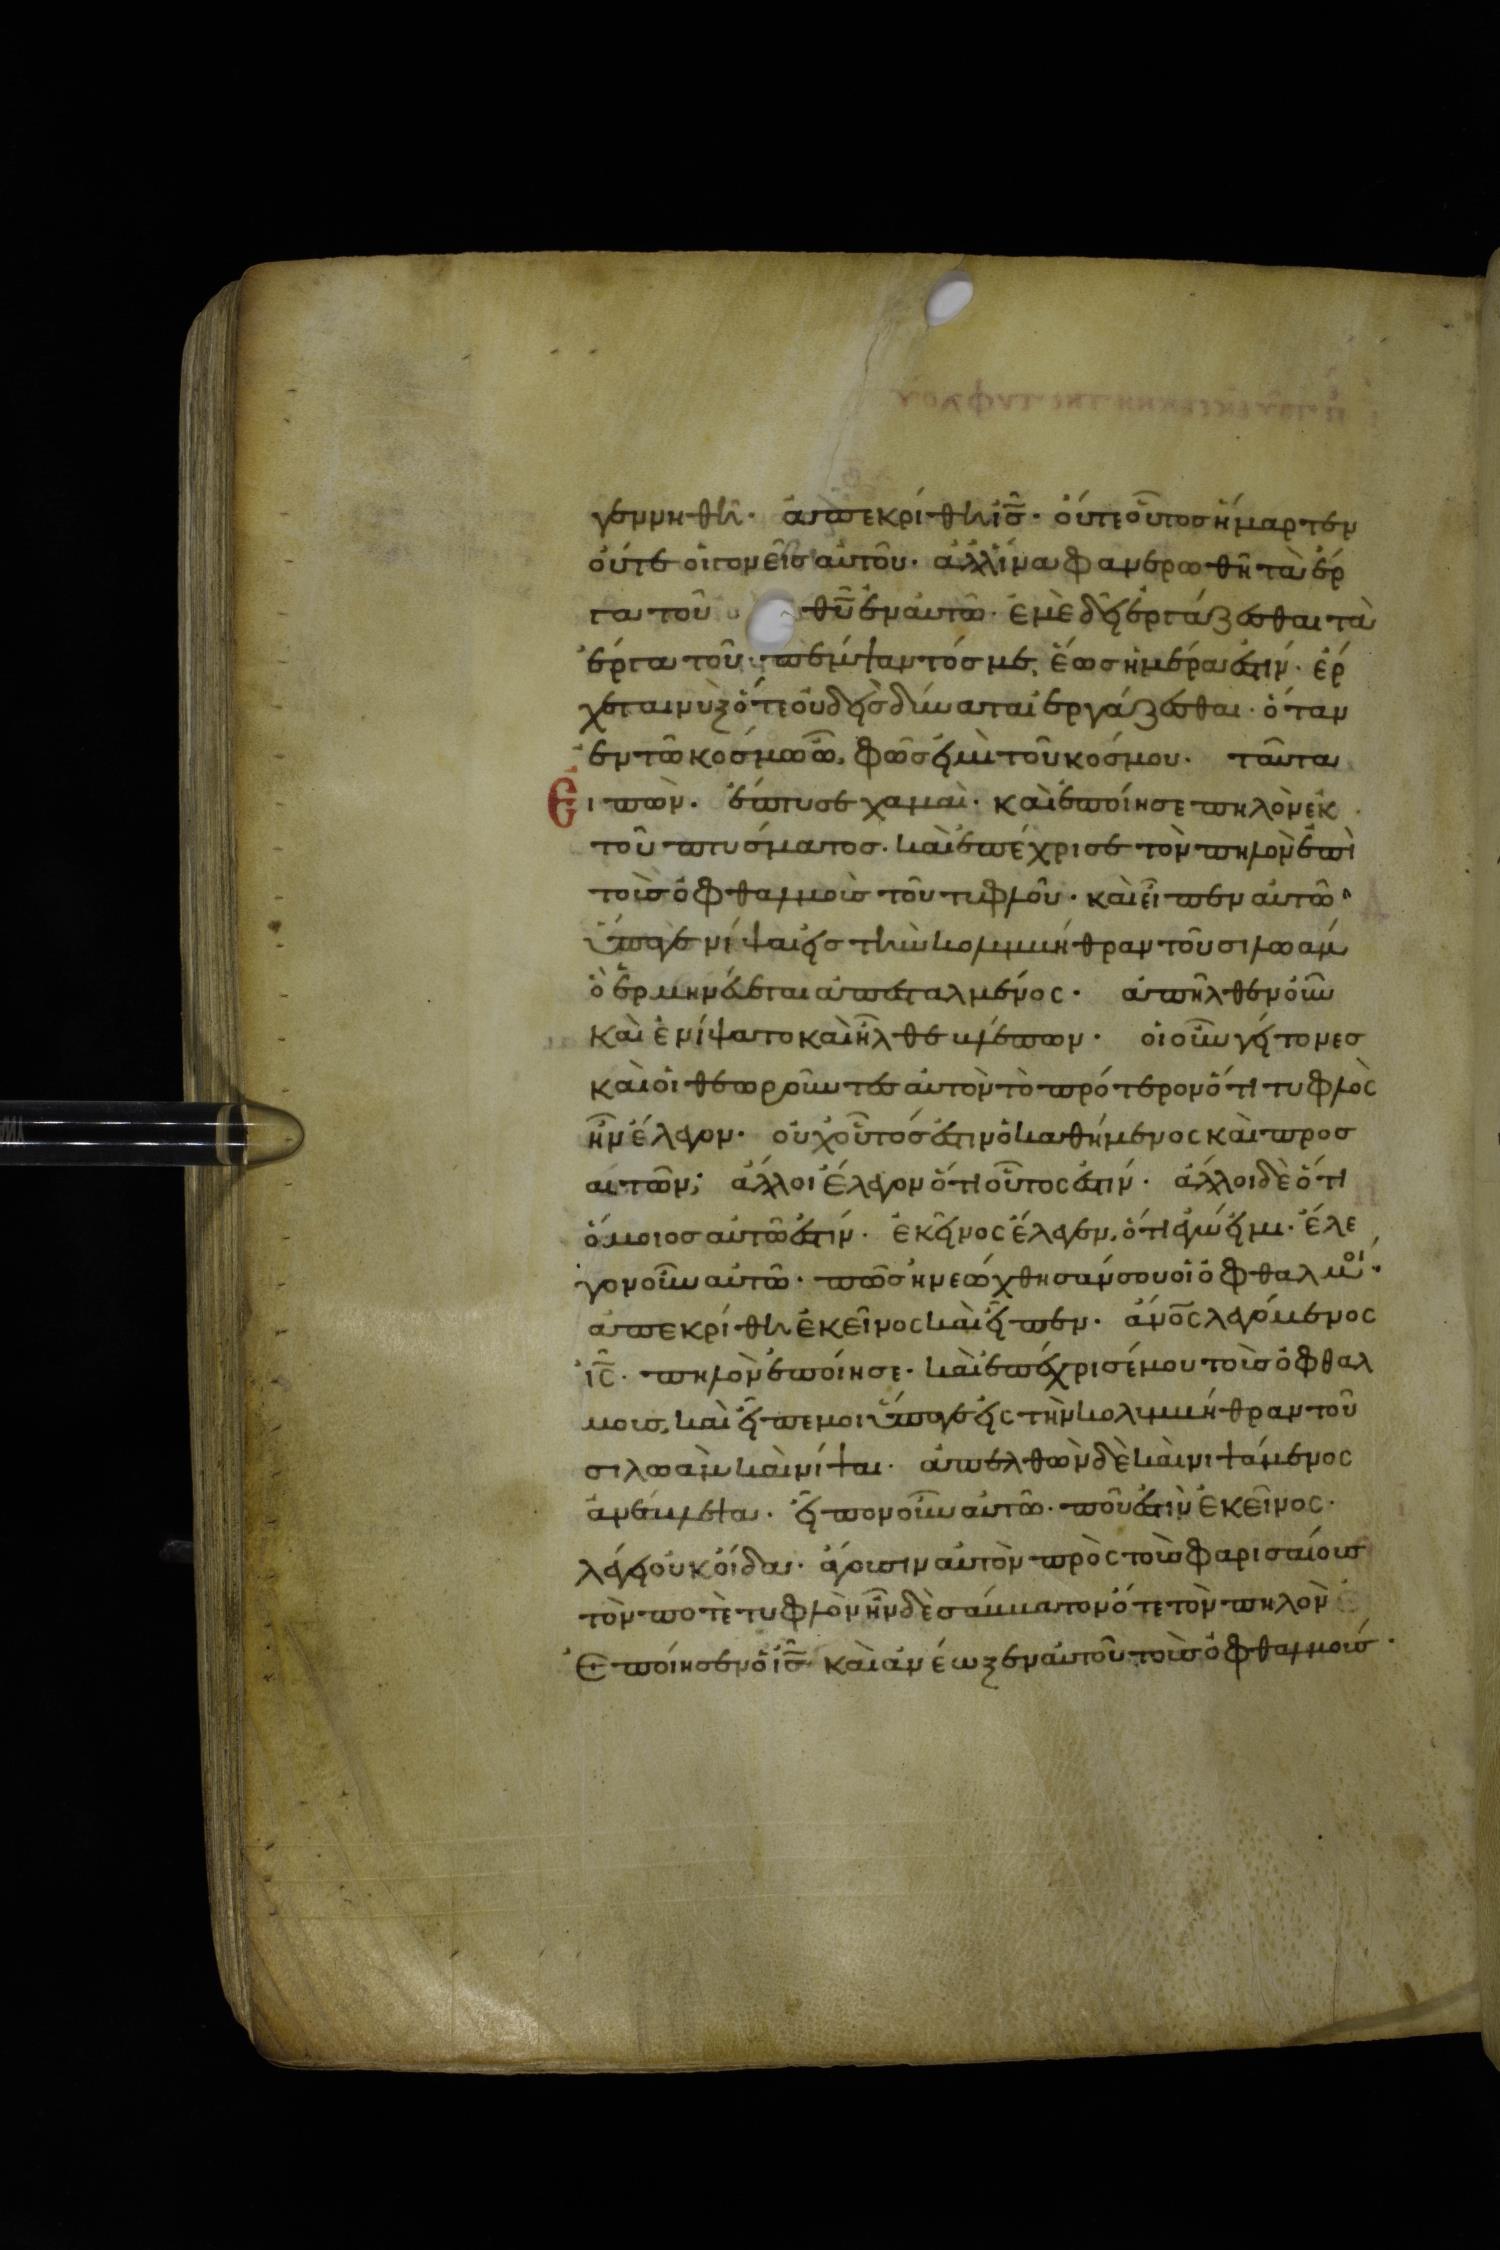 γεννηθῆ· ἀπεκρίθη ἰς̅· οὔτε οὗτος ἥμαρτεν
οὔτε οἱ γονεῖς αὐτοῦ· ἀλλ ἵνα φανερωθῆ τὰ ἔρ
γα τοῦ θυ̅ ἐν αὐτῶ· ἐμὲ δεῖ ἐργάζεσθαι τὰ
ἔργα τοῦ πέμψαντός με, ἕως ἡμέρα ἐστίν· ἔρ
χεται νὺξ ὅτε οὐδεὶς δύναται ἐργάζεσθαι· ὅταν
ἐν τῶ κόσμω ὦ, φῶς εἰμὶ τοῦ κόσμου· ταῦτα
εἰπὼν· ἔπτυσε χαμαὶ· καὶ ἐποίησε πηλὸν ἐκ
τοῦ πτύσματος· καὶ ἐπέχρισε τὸν πηλὸν ἐπὶ
τοὺς ὀφθαλμοὺς τοῦ τυφλοῦ· καὶ εἶπεν αὐτῶ·
ὕπαγε νίψαι εἰς τὴν κολυμβήθραν τοῦ σιλωάμ
ὃ ἑρμηνεύεται ἀπεσταλμένος· ἀπῆλθεν οὖν
καὶ ἐνίψατο καὶ ἦλθε βλέπων· οἱ οὖν γείτονες
καὶ οἱ θεωροῦντες αὐτὸν τὸ πρότερον ὅτι τυφλὸς
ἦν ἔλεγον· οὐχ οὗτός ἐστιν ὁ καθήμενος καὶ προσ
αιτῶν; ἄλλοι ἔλεγον ὅτι οὗτος ἐστιν· ἄλλοι δὲ ὅτι
ὅμοιος αὐτῶ ἐστιν· ἐκεῖνος ἔλεγεν, ὅτι ἐγώ εἰμι· ἔλε
γον οὖν αὐτῶ· πῶς ἠνεώχθησάν σου οἱ ὀφθαλμοί·
ἀπεκρίθη ἐκεῖνος καὶ εἶπεν· ἄνο̅ς λεγόμενος
ἰς̅· πηλὸν ἐποίησε· καὶ ἐπέχρισέ μου τοὺς ὀφθαλ
μους, καὶ εἶπε μοι ὕπαγε εἰς τὴν κολυμβήθραν τοῦ
σιλωὰμ καὶ νίψαι· ἀπελθὼν δὲ καὶ νιψάμενος
ἀνέβλεψα· εἶπον οὖν αὐτῶ· ποῦ ἐστὶν ἐκεῖνος·
λέγει οὐκ οἶδα· ἄγουσιν αὐτὸν πρὸς τοὺς φαρισαίους
τὸν ποτὲ τυφλὸν ἦν δὲ σάββατον ὅτε τὸν πηλὸν
ἐποίησεν ὁ ἰς̅ καὶ ἀνέωξεν αὐτοῦ τοὺς ὀφθαλμούς·